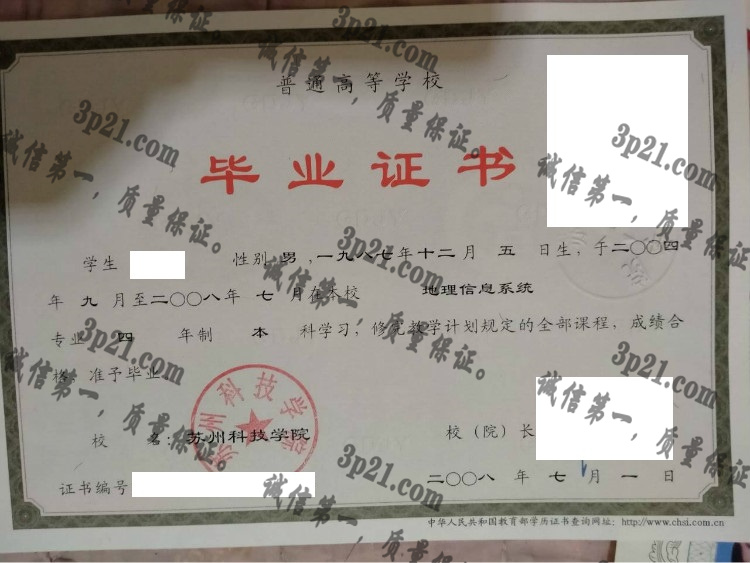 普通高等学校
毕业证书
学生 性别 男 ,一九八七年十二月 五 日生，于二〇〇四
年 九 月至二〇〇八年 七 月在本校 地理信息系统
专业 四 年制 本 科学习，修完教学计划规定的全部课程，成绩合
格，准予毕业。
校 名：苏州科技学院 校（院）长
证书编号 二〇〇八 年 七 月 一 日
中华人民共和国教育部学历证书查询网址：http://www.chsi.com.cn
苏州科技学院
3p21.com
诚信第一，质量保证。
3p21.com
诚信第一，质量保证。
3p21.com
诚信第一，质量保证。
3p21.com
诚信第一，质量保证。
3p21.com
诚信第一，质量保证。
3p21.com
诚信第一，质量保证。
3p21.com
诚信第一，质量保证。
3p21.com
诚信第一，质量保证。